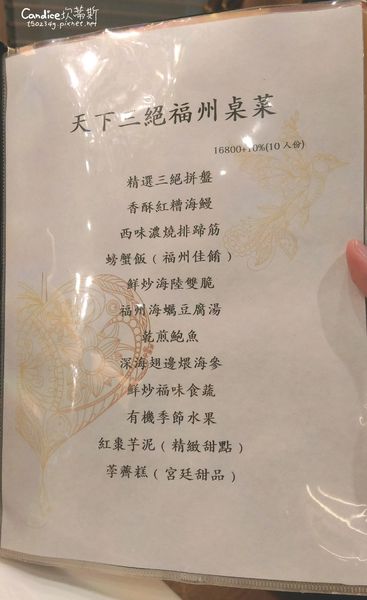 Candice坎蒂斯
t50234g.pixnet.net
天下三絕福州桌菜
16800+10%(10人份)
精選三絕拼盤
香酥紅糟海鰻
西味濃燒排蹄筋
螃蟹飯（福州佳餚）
鮮炒海陸雙脆
福州海蠣豆腐湯
乾煎鮑魚
深海翅邊煨海參
鮮炒福味食蔬
有機季節水果
紅棗芋泥（精緻甜點）
荸薺糕（宮廷甜品）